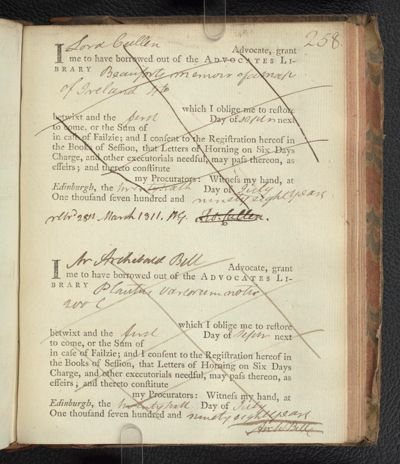 258.
I Lord Cullen Advocate, grant
me to have borrowed out of the ADVOCATES LI-
BRARY Beauforts memoir of a map
of Ireland 4to
which I oblige me to reſtore
betwixt and the firſt Day of Septr next
to come, or the Sum of
in caſe of Failzie; and I conſent to the Regiſtration hereof in
the Books of Seſſion, that Letters of Horning on Six Days
Charge, and other executorials needful, may paſs thereon, as
effeirs; and thereto conſtitute
my Procurators: Witneſs my hand, at
Edinburgh, the Day of July
One thouſand ſeven hundred and ninety eight years
28th March 1811.
Cullen.
I Mr Archibald Bell Advocate, grant
me to have borrowed out of the ADVOCATES LI-
BRARY Plautus variorum
which I oblige me to reſtore
betwixt and the firſt Day of Septr next
to come, or the Sum of
in caſe of Failzie; and I conſent to the Regiſtration hereof in
the Books of Seſſion, that Letters of Horning on Six Days
Charge, and other executorials needful, may paſs thereon, as
effeirs; and thereto conſtitute
my Procurators: Witneſs my hand, at
Edinburgh, the Day of July
One thouſand ſeven hundred and ninety eight years
Archd Bell